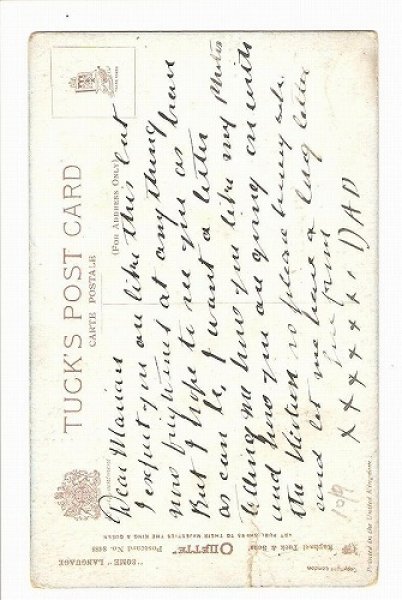 TUCK'S POST CARD
CARTE POSTALE
(FOR ADDRESS ONLY)
Dear Marian
I expect you are like this but
 frightened at anything
But I hope to see you as been
as can be, I want a letter
telling me how you like my Photos
and how you are going on with
the so please
and let me have a long letter
from
x x x x x x x DAD
1019
"SOME" LANGUAGE
"OILETTE" Postcard No. 8488
Raphael Tuck & Sons'
ART PUBLISHERS TO THEIR MAJESTIES THE KING & QUEEN
Copyright London
Printed in the United Kingdom